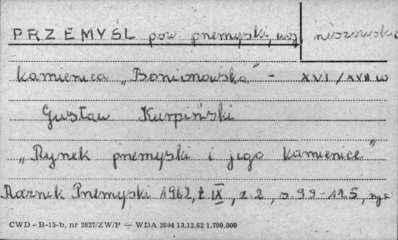 PRZEMYŚL pow przemyski, woj rzeszowskie
kamienica „Bonionowska" - XVI/XVII w
Gustaw Kurpiński
„Rynek przemyski i jego kamienice"
Rocznik Przemyski 1962, t IX, z.2, s 99-125, ryc
CWD - B-15-b, nr 2827/ZW/P — WDA 2694 13.12.62 1.700.000